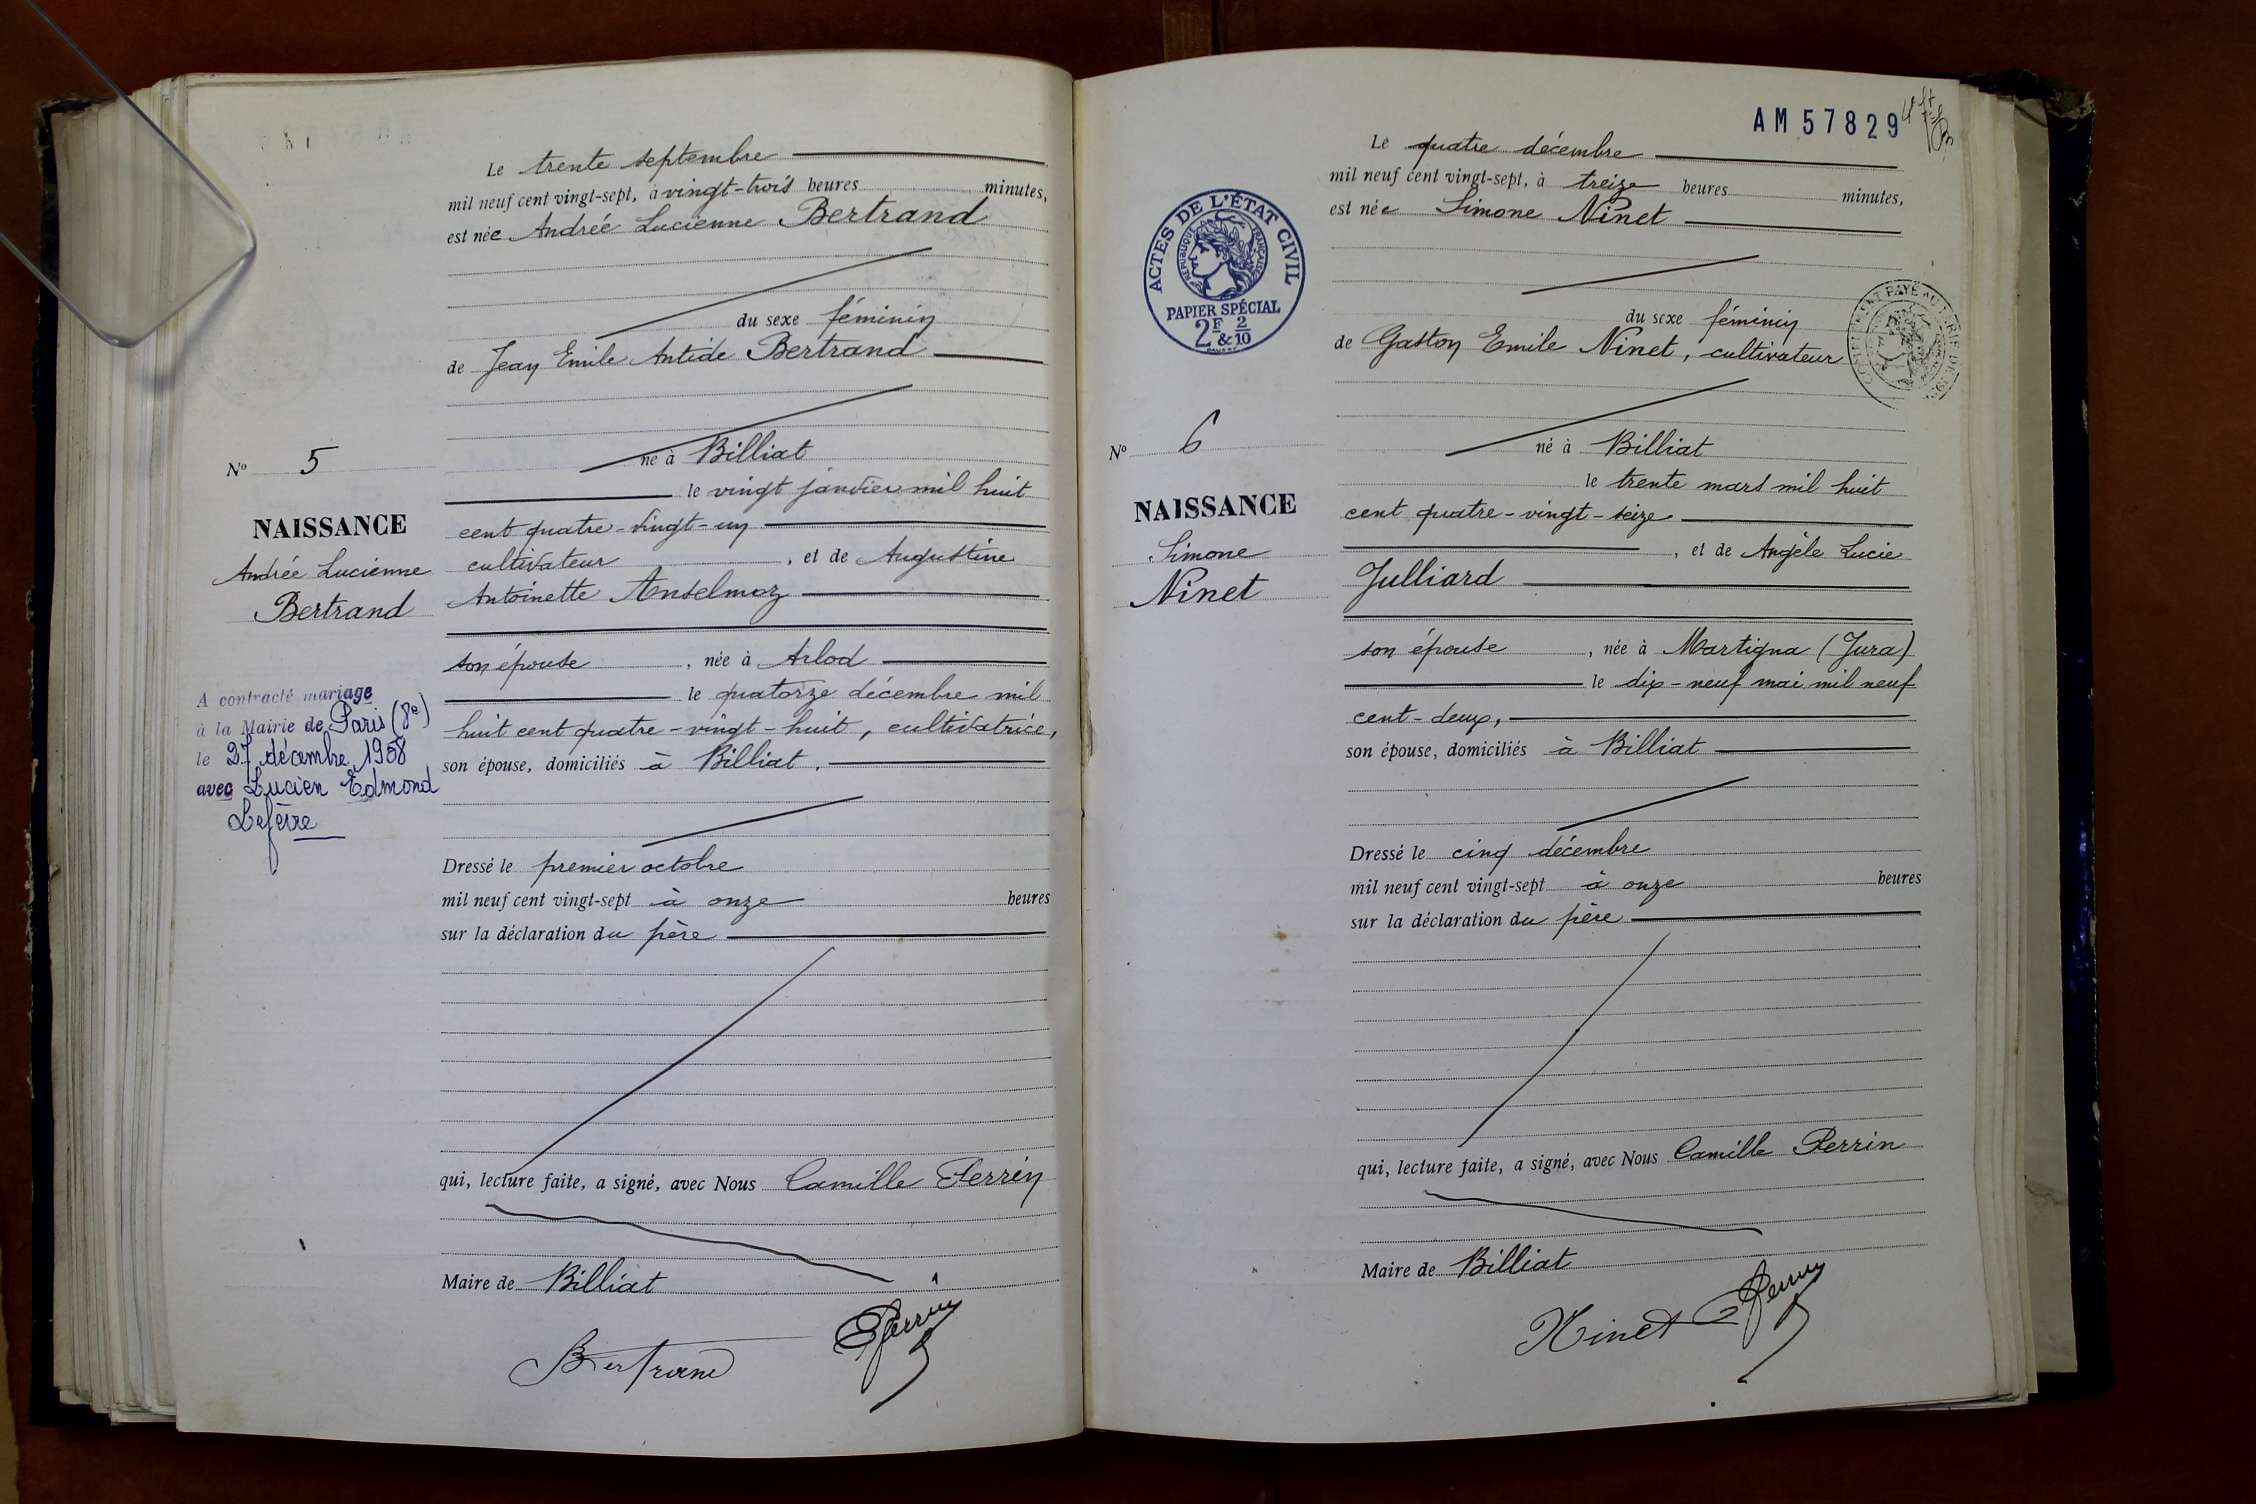 Le trente septembre
mil neuf cent vingt-sept, à vingt-trois heures minutes,
est née Andrée Lucienne Bertrand
du sexe féminin
de Jean Emile Antide Bertrand
né à Billiat
le vingt janvier mil huit
cent quatre-vingt-un
cultivateur, et de Augustine
Antoinette Anselmoz
son épouse, née à Arlod
le quatorze décembre mil
huit cent quatre-vingt-huit, cultivatrice,
son épouse, domiciliés à Billiat.
Dressé le premier octobre
mil neuf cent vingt-sept à onze heures
sur la déclaration du père
qui, lecture faite, a signé, avec Nous Camille Perrin
Maire de Billiat
Bertrand Perrin
No 5
NAISSANCE
Andrée Lucienne
Bertrand
A contracté mariage
à la Mairie de Paris (8e)
le 27 décembre 1958
avec Lucien Edmond
Lefèvre
AM 57829
Le quatre décembre
mil neuf cent vingt-sept, à treize heures minutes,
est née Simone Ninet
du sexe féminin
de Gaston Emile Ninet, cultivateur
né à Billiat
le trente mars mil huit
cent quatre-vingt-seize
, et de Angèle Lucie
Julliard
son épouse, née à Martigna (Jura)
le dix-neuf mai mil neuf
cent-deux,
son épouse, domiciliés à Billiat
Dressé le cinq décembre
mil neuf cent vingt-sept à onze heures
sur la déclaration du père
qui, lecture faite, a signé, avec Nous Camille Perrin
Maire de Billiat
Ninet Perrin
ACTES DE L'ÉTAT CIVIL
RÉPUBLIQUE FRANÇAISE
PAPIER SPÉCIAL
2F & 2/10
No 6
NAISSANCE
Simone
Ninet